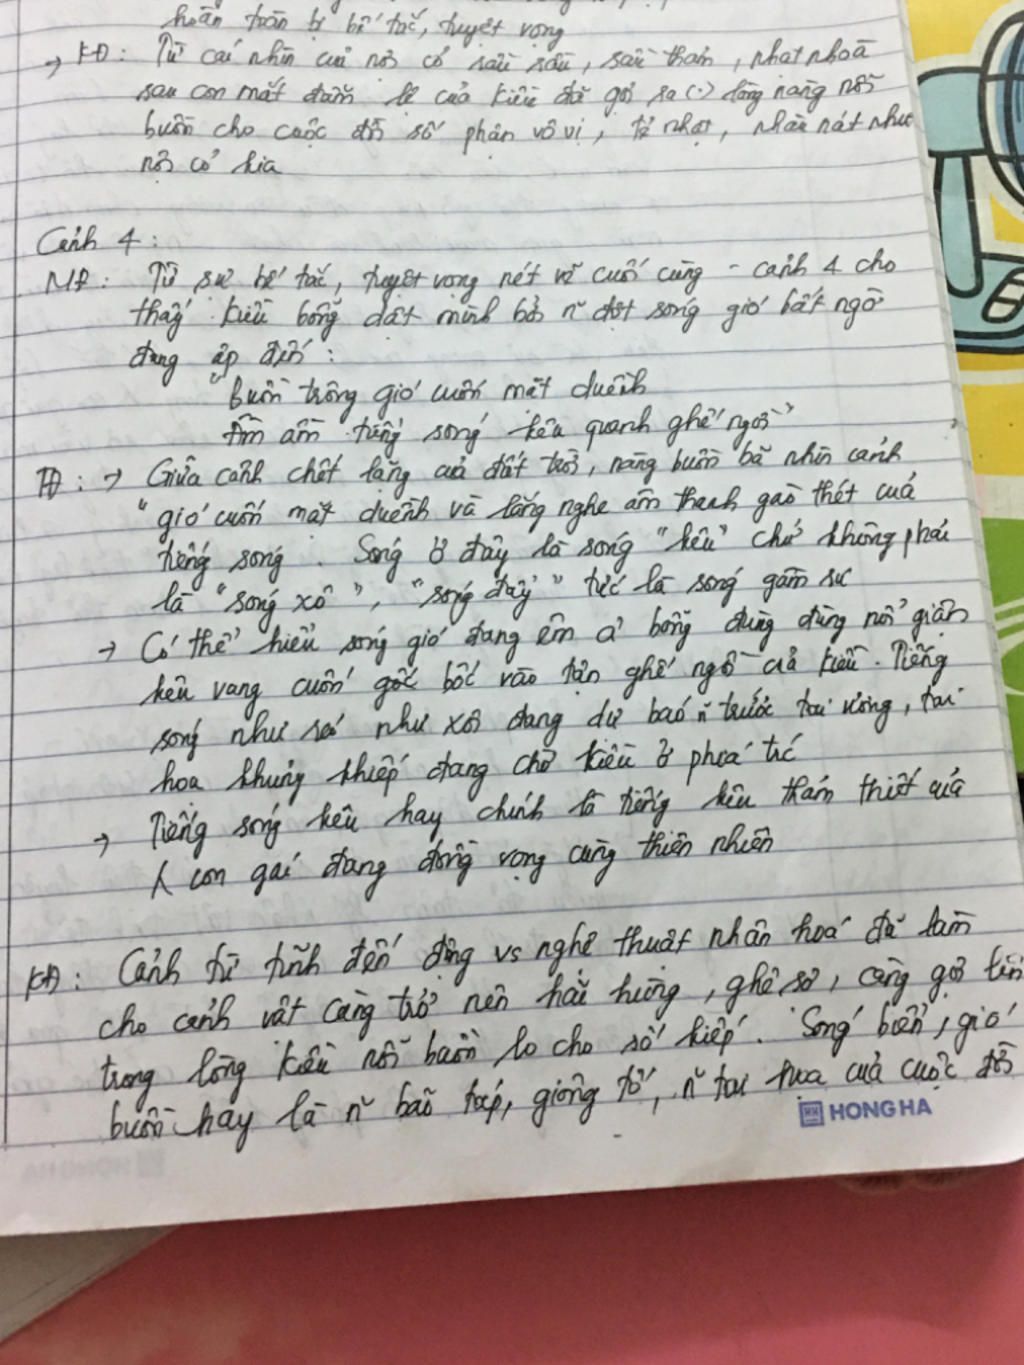 hoàn toàn bị bế tắc, tuyệt vọng
→ KĐ: Từ cái nhìn củi nội cỏ rầu rầu, sầu thảm, nhạt nhoà
sau con mắt đẫm lệ của kiều đã gợi ra (.) lòng nàng nỗi
buồn cho cuộc đời số phận vô vị, tẻ nhạt, nhàu nát như
nội cỏ kia
Cảnh 4:
NĐ: Từ sự bế tắc, tuyệt vọng nét vẽ cuối cùng - cảnh 4 cho
thấy kiều bỗng dật mình bởi ~ đợt sóng gió bất ngờ
đang ập đến:
"Buồn trông gió cuốn mặt duềnh
Ầm ầm tiếng sóng kêu quanh ghế ngồi"
TĐ: → Giữa cảnh chết lặng của đất trời, nàng buồn bã nhìn cảnh
"gió cuốn mặt duềnh và lắng nghe âm thanh gào thét của
tiếng sóng. Sóng ở đây là sóng "kêu" chứ không phải
là "sóng xô", "sóng đẩy" tức là sóng gầm sự
→ Có thể hiểu sóng gió đang êm ả bỗng đùng đùng nổi giận
kêu vang cuốn gốc bốc vào tận ghế ngồi của kiều. Tiếng
sóng như réo như xôi đang dự báo ~ trước tai ương, tai
hoạ khủng khiếp đang chờ kiều ở phía trc
→ Tiếng sóng kêu hay chính là tiếng kêu thảm thiết của
người con gái đang đồng vọng cùng thiên nhiên
KĐ: Cảnh từ tĩnh đến động vs nghệ thuật nhân hoá đã làm
cho cảnh vật càng trở nên hãi hùng, ghê sợ, càng gợi lên
trong lòng kiều nỗi buồn lo cho số kiếp. Sóng biển, gió
buồn hay là ~ bão táp, giông tố, ~ tai hoạ của cuộc đời
HONG HA